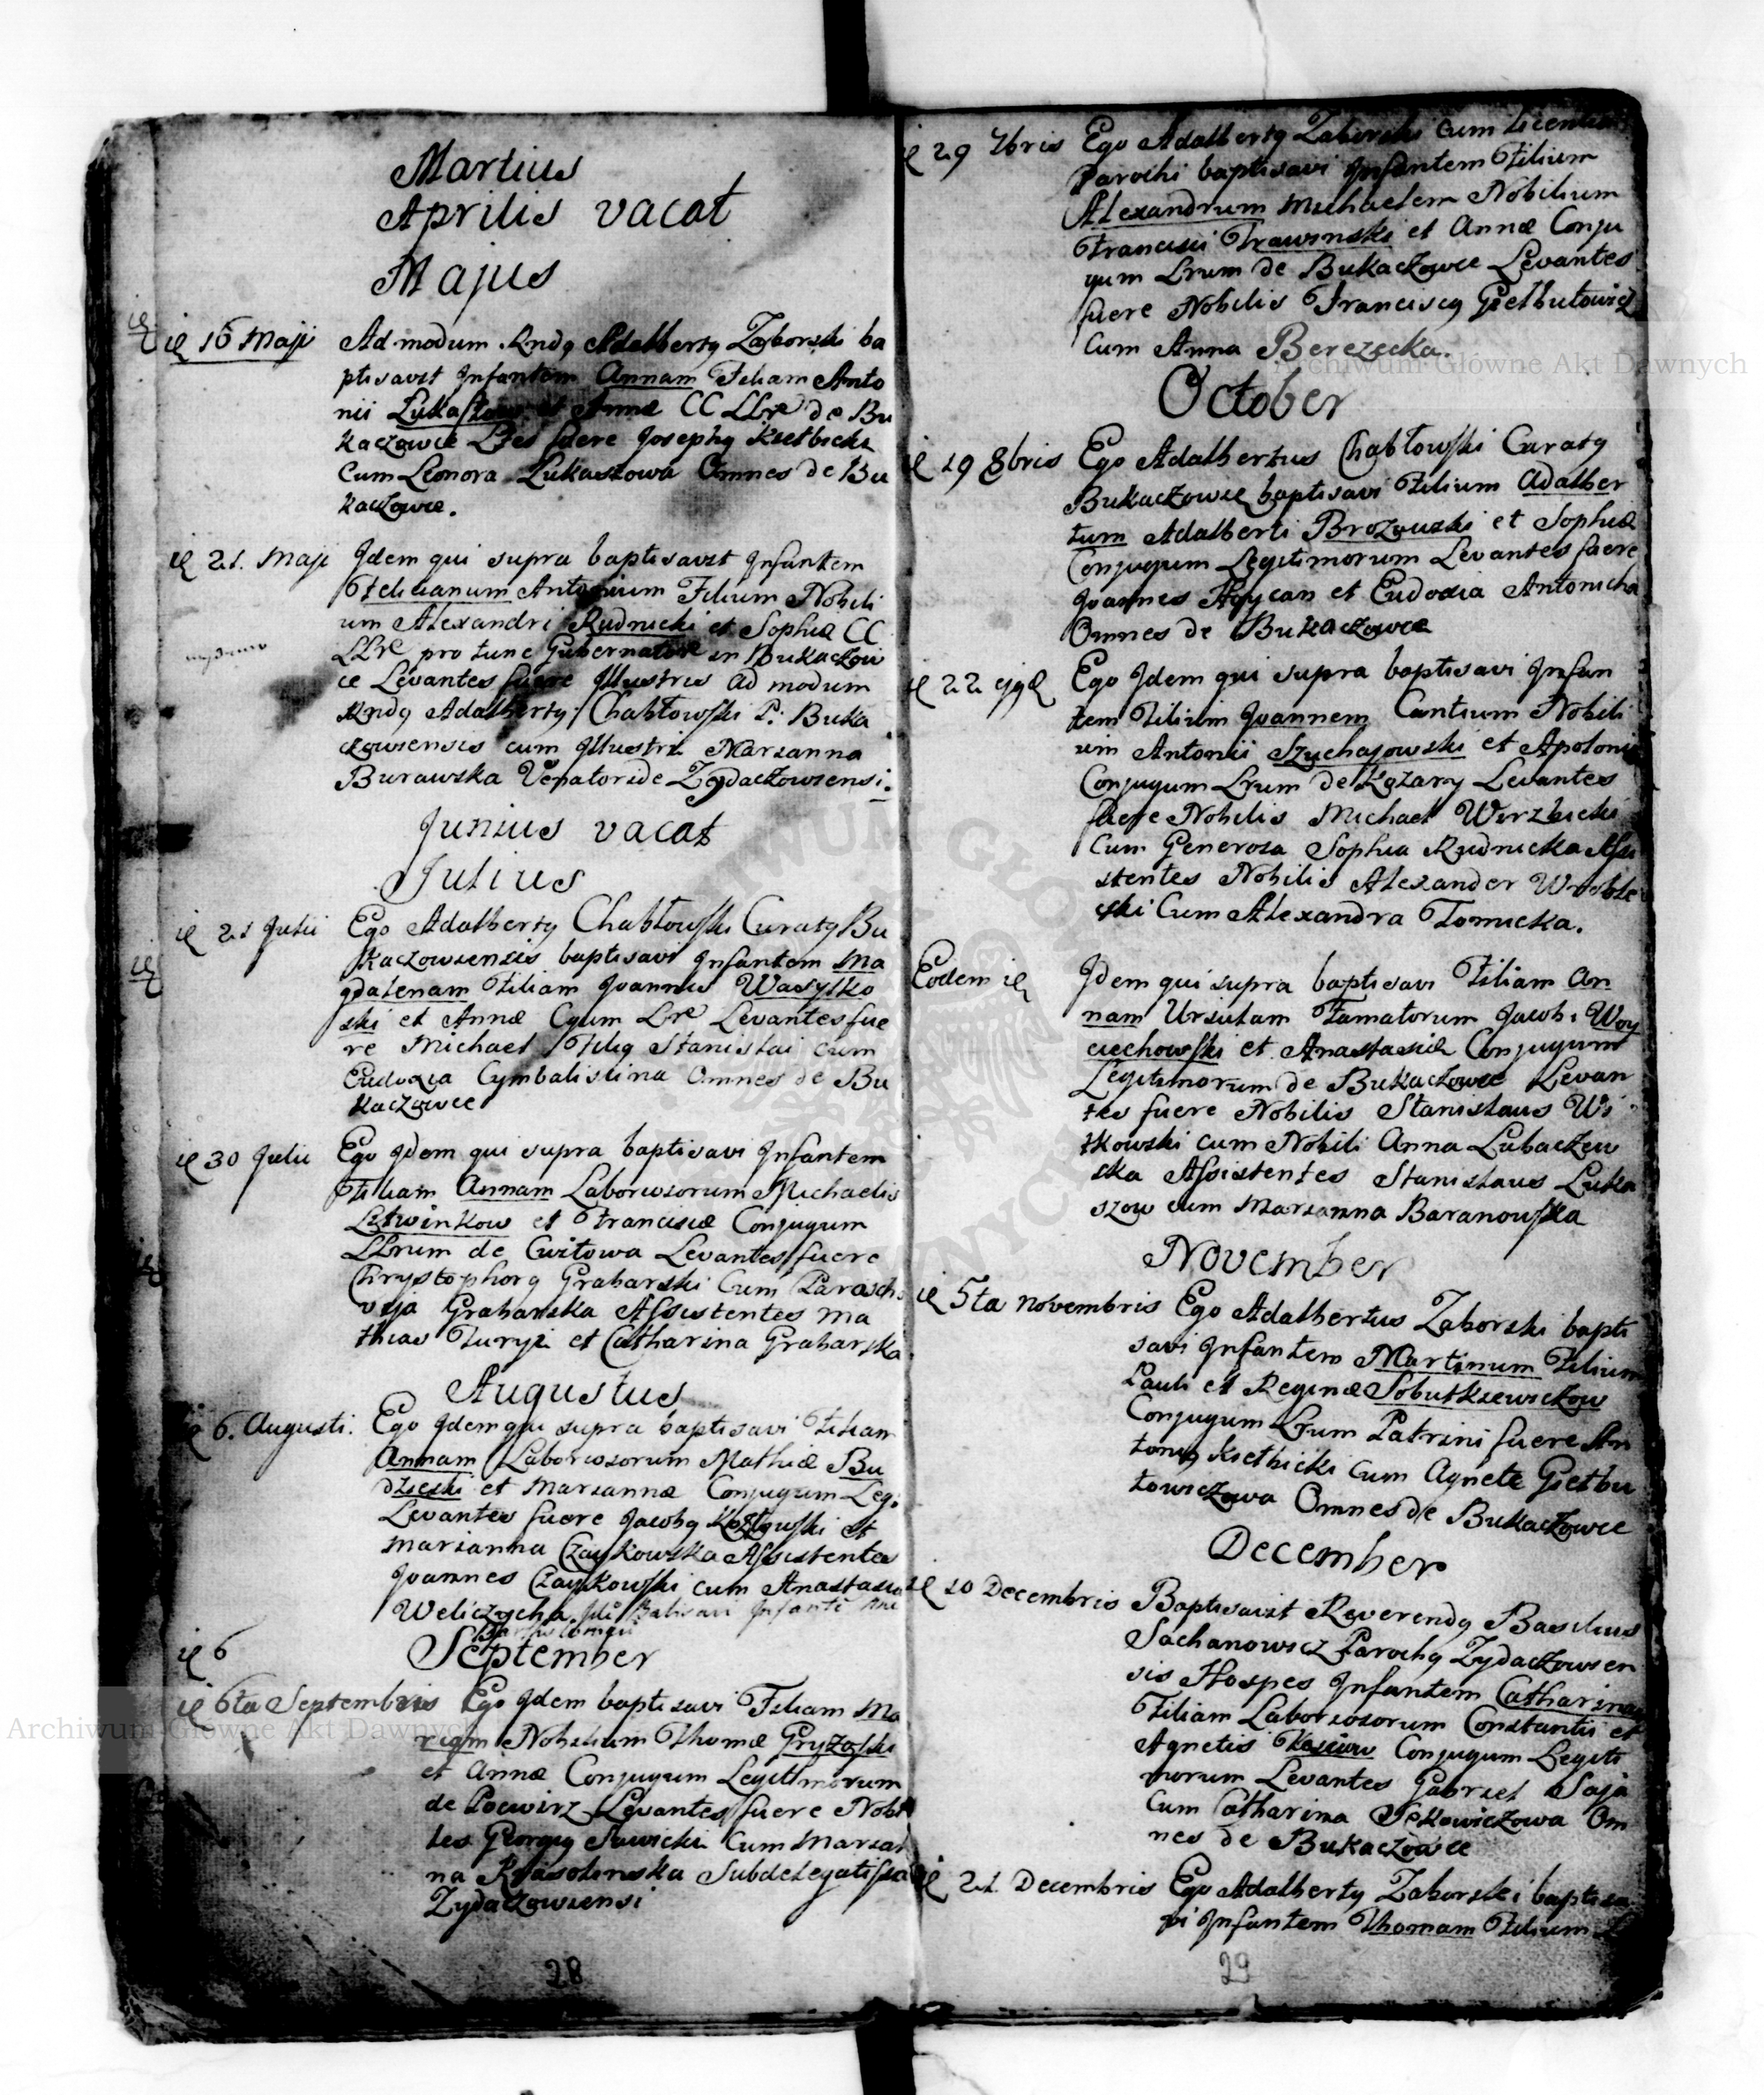 Martius
Aprilis vacat
Majus
16 Maji Admodum Rndg Adalbertg Zaborski ba
ptisavit Infantem Annam Filiam Anto
nii et Annæ CC LLre de Bu
kaczowce Ltes fuere Josephg Kiełbicki
cum Leonora Lukaszowa Omnes de Bu
kaczowce.
21. Maji Idem qui supra baptisavit Infantem
Felicianum Antonium Filium Nobili
um Alexandri Rudnicki et Sophiæ CC
LLre pro tunc Gubernatore in Bukaczow
ce Levantes fuere Illustris admodum
Rndg Adalbertg Chabłowski P. Buka
czowiensis cum Illustri Marianna
Burawska Venatoride Zydaczowiensi.
Junius vacat
Julius
21 Julii Ego Adalbertg Chabłowski Curatg Bu
kaczowiensis baptisavi Infantem Ma
gdalenam Filiam Joannis Wasylko
ski et Annæ Cgum Lre Levantes fue
re Michael Filig Stanislai cum
Eudoxia Cymbalistina Omnes de Bu
kaczowce
30 Julii Ego Idem qui supra baptisavi Infantem
Filiam Annam Laboriosorum Michaelis
Litwinkow et Franciscæ Conjugum
LLrum de Cwitowa Levantes fuere
Chrystophorg Grabarski Cum Parasch
vija Grabarska Assistentes Ma
thias Turyi et Catharina Grabarska
Augustus
6. Augusti. Ego Idem qui supra baptisavi Filiam
Annam Laboriosorum Mathiæ Bu
dzicski et Mariannæ Conjugum Leg:
Levantes fuere Jacobg et
Marianna Czaykowska Assistentes
Joannes Czaykowski cum Anastasia
Weliczycha. Infantē
6 September
6ta Septembris Ego Idem baptisavi Filiam Ma
riam Nobilium Thomæ Gryzoski
et Annæ Conjugum Legitimorum
de Poswirz Levantes fuere Nobi
les Georgig Sawicki Cum Marian
na Krasolinska Subdelegatissa
Zydaczowiensi
28
29 7bris Ego Adalbertg Zaborski cum licentia
Parochi baptisavi Infantem Filium
Alexandrum Michaelem Nobilium
Francisci Trawinski et Annæ Conju
gum Lrum de Bukaczowce Levantes
fuere Nobilis Franciscg Giełbutowicz
Cum Anna Berezecka.
October
19 8bris Ego Adalbertus Chabłowski Curatg
Bukaczowce baptisavi Filium Adalber
tum Adalberti Brozowski et Sophiæ
Conjugum Legitimorum Levantes fuere
Joannes et Eudoxia Antonicha
Omnes de Bukaczowce
22 ejgd Ego Idem qui supra baptisavi Infan
tem Filium Joannem Cantium Nobili
um Antonii Szychajowski et Apoloniæ
Conjugum Lrum de Kozary Levantes
fuere Nobilis Michael Wirzbicki
Cum Generosa Sophia Rudnicka Assi
stentes Nobilis Alexander Wroble
wski Cum Alexandra Tomicka.
Eodem Idem qui supra baptisavi Filiam An
nam Ursulam Famatorum Jacobi Woy
ciechowski et Anastasiæ Conjugum
Legitimorum de Bukaczowce Levan
tes fuere Nobilis Stanislaus Wi
tkowski cum Nobili Anna Lubaczew
ska Assistentes Stanislaus Luka
szow cum Marianna Baranowska
November
5ta Novembris Ego Adalbertus Zaborski bapti
savi Infantem Martinum Filium
Pauli et Reginæ Sobutkiewickow
Conjugum Lrum Patrini fuere An
tonig Kiełbicki cum Agnete Giełbu
towiczowa Omnes de Bukaczowce
December
10 Decembris Baptisavit Reverendg Basilius
Sachanowicz Parochg Zydaczowien
sis Hospes Infantem Catharinam
Filiam Laboriosorum Constantis et
Agnetis Conjugum Legiti
morum Levantes Gabriel Saja
Cum Catharina Sekowiczowa Om
nes de Bukaczowce
21. Decembris Ego Adalbertg Zaborski baptisa
vi Infantem Thomam Filium
29
Archiwum Główne Akt Dawnych
Archiwum Główne Akt Dawnych